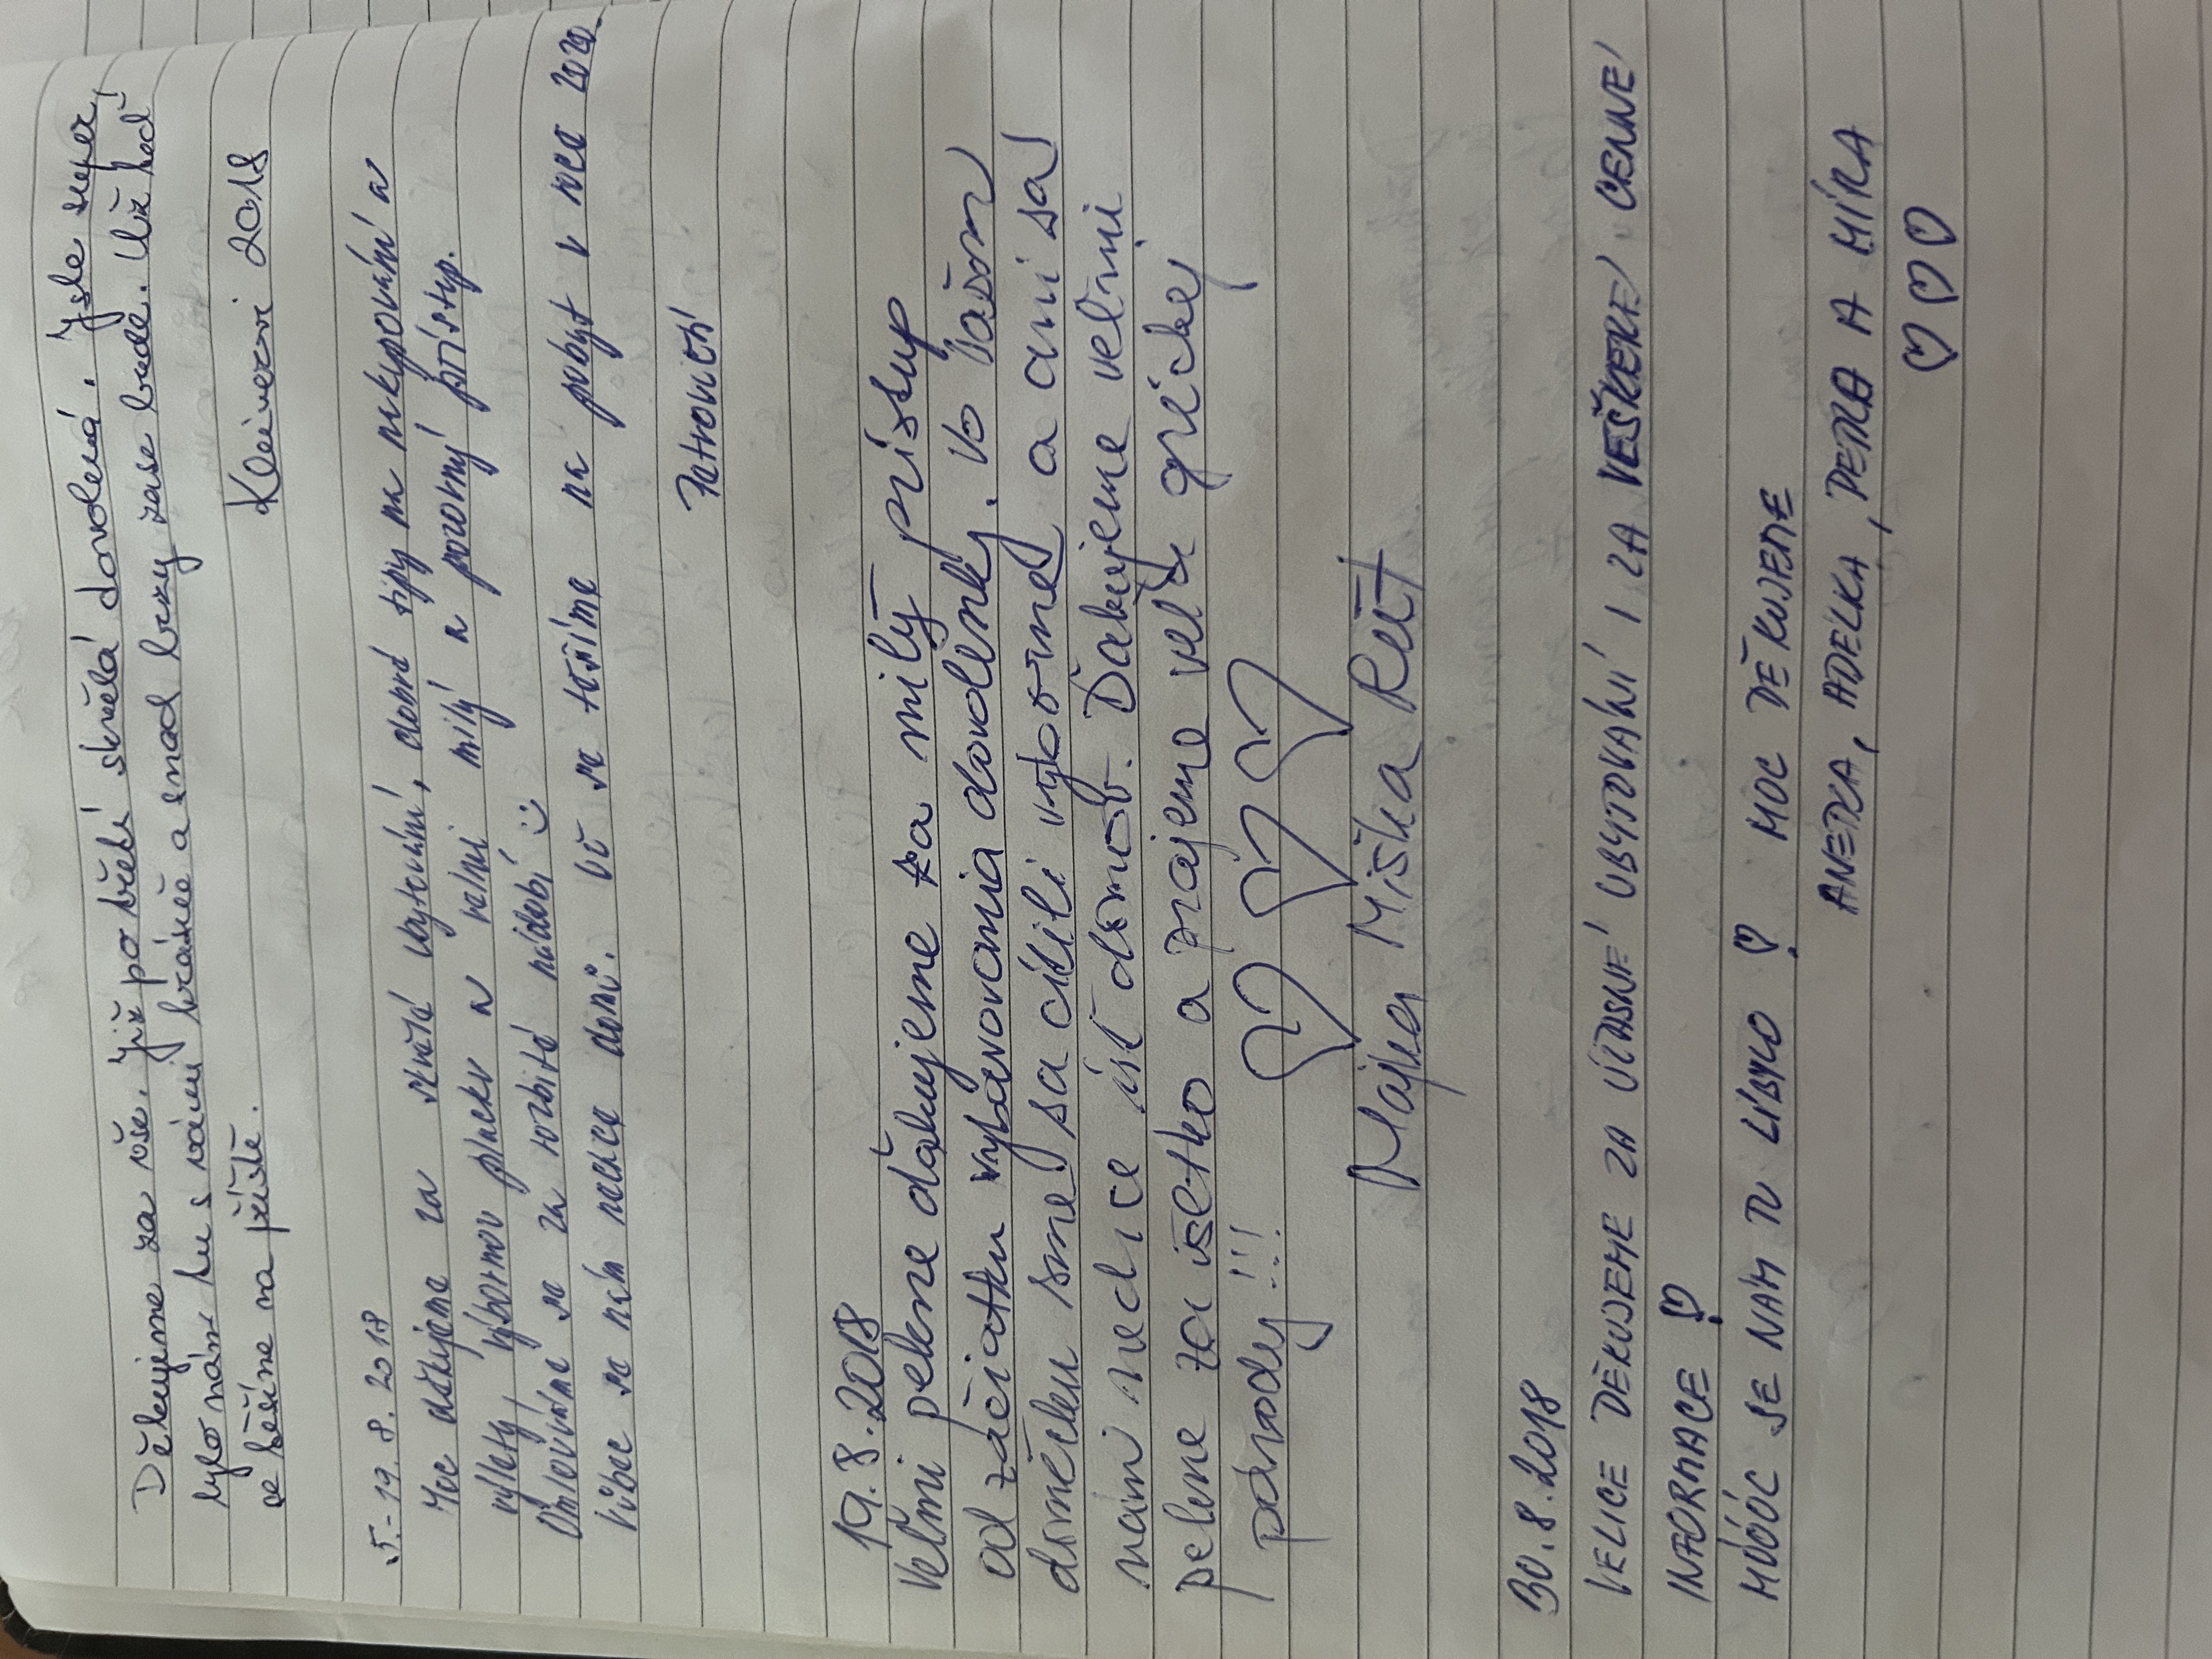 Děkujeme za vše. Již po třetí skvělá dovolená. Jste super,
bylo nám tu s vámi krásně a snad brzy zase bude. Už teď
se těšíme na příště.
Kleinerovi 2018
5.-19. 8. 2018
Moc děkujeme za skvělé ubytování, dobré tipy na nakupování a
výlety, výbornou placku a velmi milý a pozorný přístup.
Omlouváme se za rozbité nádobí :)
Vůbec se nám nechce domů. Už se těšíme na pobyt v roce 2020.
Petrovičtí
19.8.2018
Veľmi pekne ďakujeme za milý prístup
od začiatku vybavovania dovolenky. Vo Vašom
domčeku sme sa cítili výborne a ani sa
nám nechce ísť domov. Ďakujeme veľmi
pekne za všetko a prajeme veľa gréckej
pohody!!!
Majka Miška Peťť
30.8.2018
VELICE DĚKUJEME ZA ÚŽASNÉ UBYTOVÁNÍ I ZA VEŠKERÉ CENNÉ
INFORMACE ♡
MÓÓÓC SE NÁM TU LÍBYLO ♡ MOC DĚKUJEME
ANETKA, ADÉLKA, PETRA A MÍRA
♡ ♡ ♡